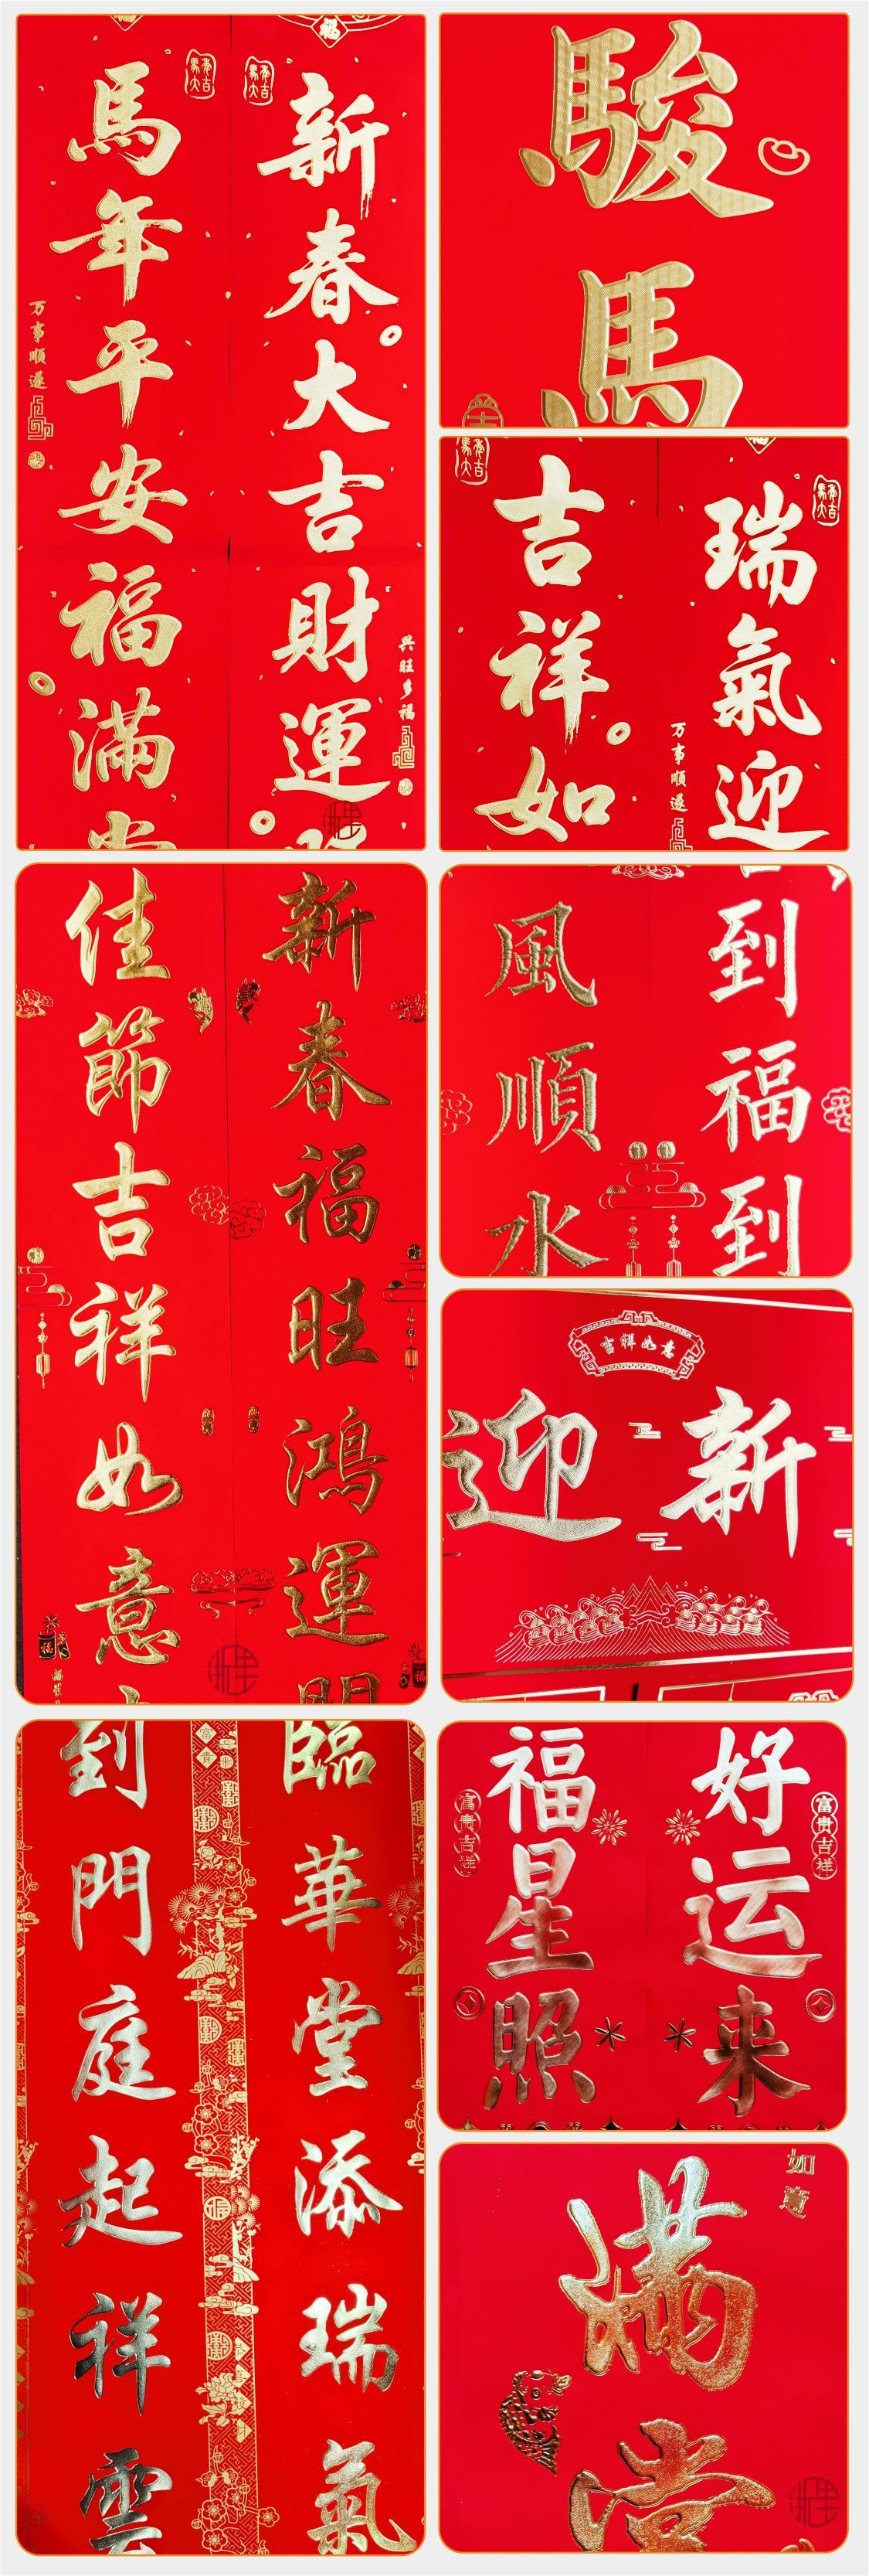 新春大吉財運
馬年平安福滿
兴旺多福
万事順遂
駿馬
瑞氣迎
吉祥如
万事順遂
新春福旺鴻運開
佳節吉祥如意
到福到
風順水
吉祥如意
新
迎
臨華堂添瑞氣
到門庭起祥雲
富貴
好运来
福星照
富貴吉祥
富貴吉祥
如意
满堂